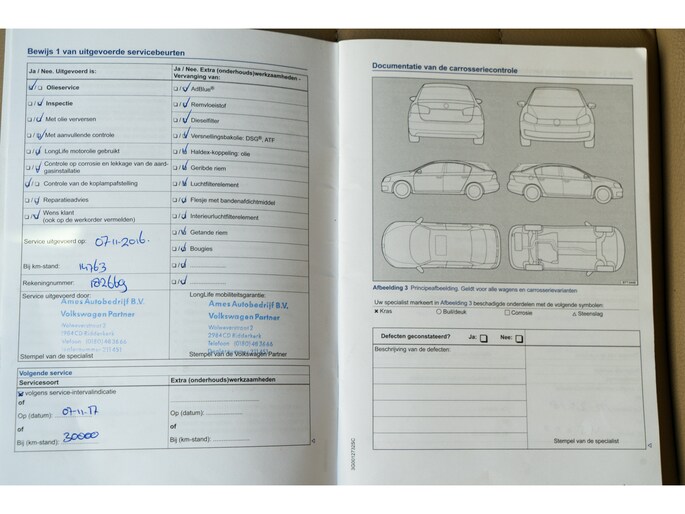 Bewijs 1 van uitgevoerde servicebeurten
Ja / Nee. Uitgevoerd is:
Olieservice
Inspectie
Met olie verversen
Met aanvullende controle
LongLife motorolie gebruikt
Controle op corrosie en lekkage van de aard-
gasinstallatie
Controle van de koplampafstelling
Reparatieadvies
Wens klant
(ook op de werkorder vermelden)
Service uitgevoerd op: 07-11-2016.
Bij km-stand: 14763
Rekeningnummer: 182669
Service uitgevoerd door:
Ames Autobedrijf B.V.
Volkswagen Partner
Stempel van de specialist
Ja / Nee. Extra (onderhouds)werkzaamheden -
Vervanging van:
AdBlue®
Remvloeistof
Dieselfilter
Versnellingsbakolie: DSG®, ATF
Haldex-koppeling: olie
Geribde riem
Luchtfilterelement
Flesje met bandenafdichtmiddel
Interieurluchtfilterelement
Getande riem
Bougies
LongLife mobiliteitsgarantie:
Ames Autobedrijf B.V.
Volkswagen Partner
2984CD Ridderkerk
Telefoon (0180) 48 36 66
Stempel van de Volkswagen Partner
Volgende service
Servicesoort
volgens service-intervalindicatie
of
Op (datum): 07-11-17
of
Bij (km-stand): 30000
Extra (onderhouds)werkzaamheden
Op (datum):
of
Bij (km-stand):
Documentatie van de carrosseriecontrole
Afbeelding 3 Principeafbeelding. Geldt voor alle wagens en carrosserievarianten
Uw specialist markeert in Afbeelding 3 beschadigde onderdelen met de volgende symbolen:
Kras Buil/deuk Corrosie Steenslag
Defecten geconstateerd? Ja: Nee:
Beschrijving van de defecten:
Stempel van de specialist